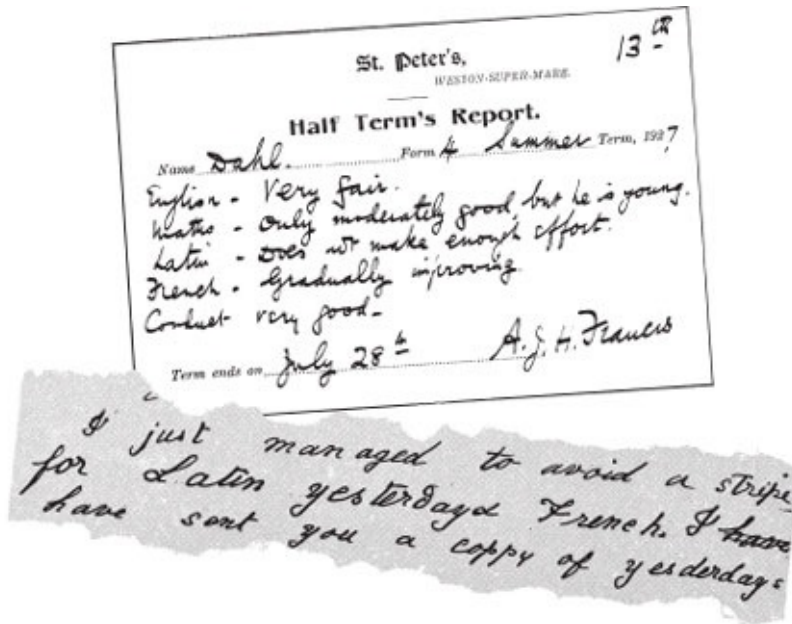 13th
St. Peter's,
WESTON-SUPER-MARE.
Half Term's Report.
Name Dahl. Form 4 Summer Term, 1927
English - Very fair.
Maths - Only moderately good, but he is young.
Latin - Does not make enough effort.
French - Gradually improving
Conduct very good -
Term ends on July 28th A. J. H. Francis
I just managed to avoid a stripe,
for Latin yesterdayd French. I have
have sent you a coppy of yesderdays